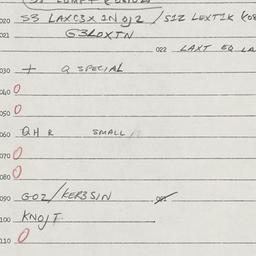 020 S3 LAXC3X IN OJ2 / S12 LEXTIK
021 G3LOXTN
022 LAXT EQ LA
030 + Q SPECIAL
040 0
050 0
060 Q H R SMALL
070 0
080 0
090 GO2/KER3SIN
100 KNOJT
110 0